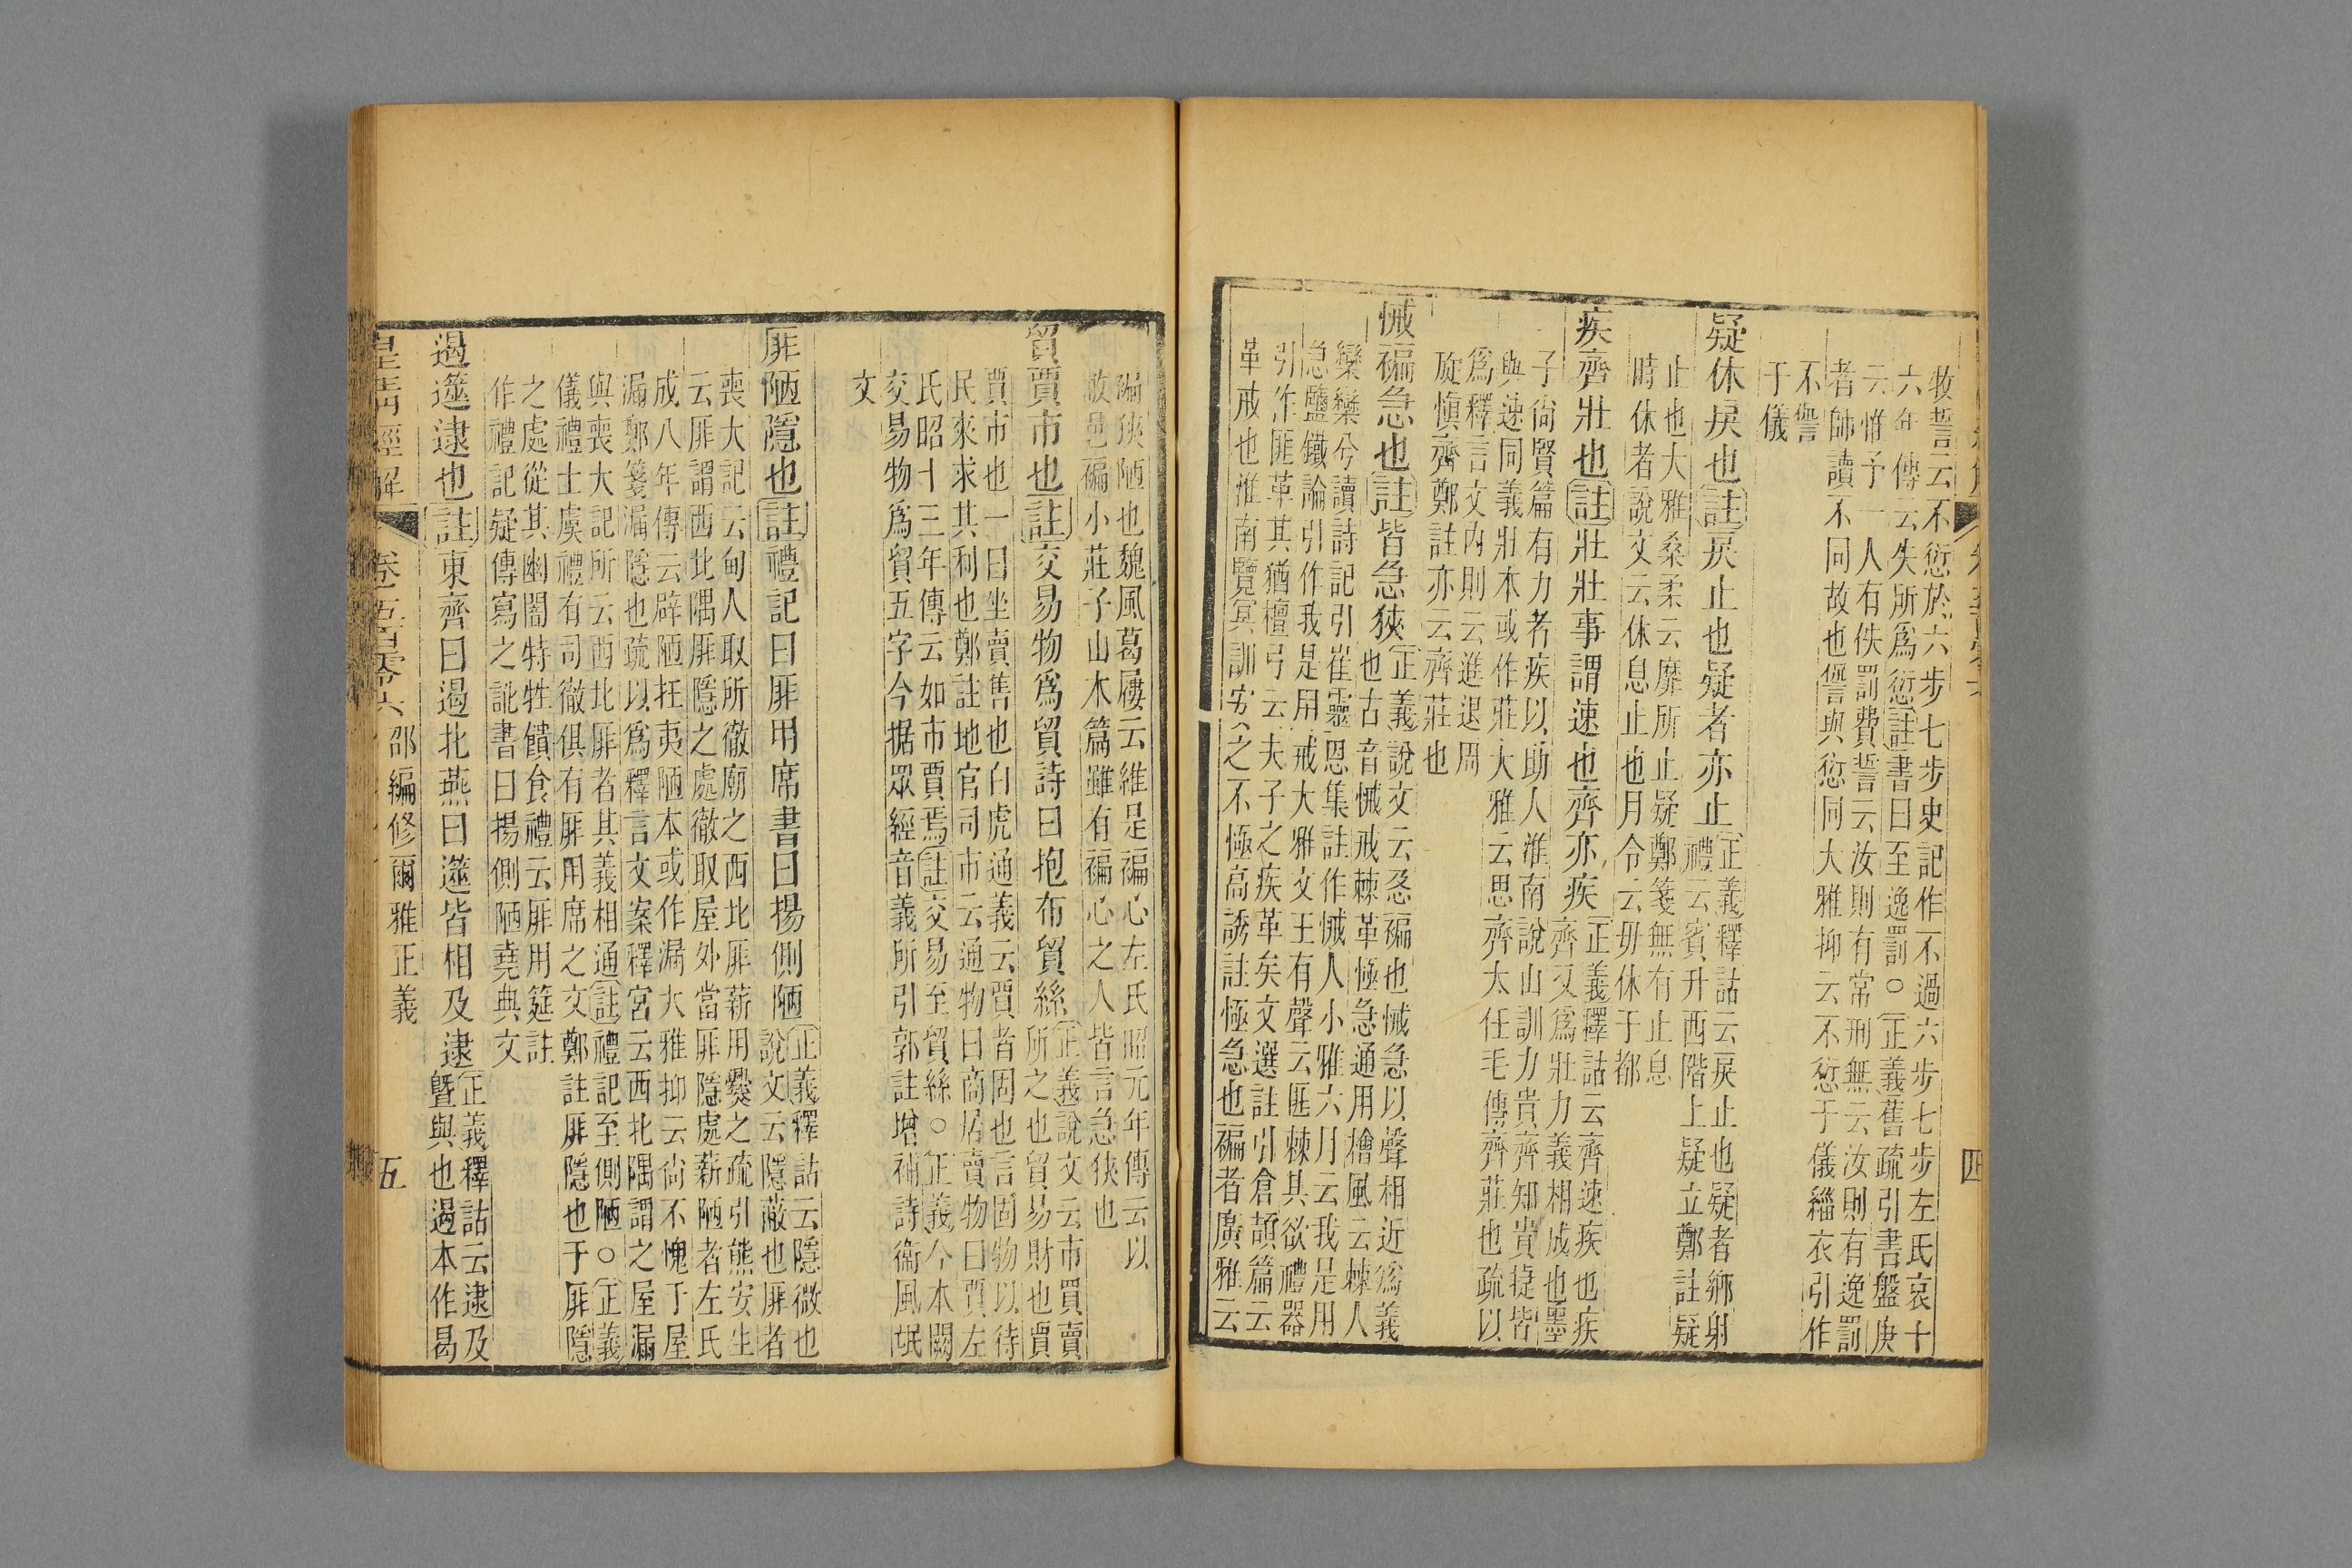 四
牧誓云不愆於六步七步史記作不過六步七步左氏哀十
六年傳云失所爲愆註書曰至逸罰○正義舊疏引書盤庚
云惟予一人有佚罰費誓云汝則有常刑無云汝則有逸罰
者師讀不同故也諐與愆同大雅抑云不愆于儀緇衣引作
不諐
于儀
疑休戾也註戾止也疑者亦止
正義釋詁云戾止也疑者鄉射
禮云賓升西階上疑立鄭註疑
止也大雅桑柔云靡所止疑鄭箋無有止息
時休者說文云休息止也月令云毋休于都
疾齊壯也註壯壯事謂速也齊亦疾
正義釋詁云齊速疾也疾
齊又爲壯力義相成也墨
子尙賢篇有力者疾以助人淮南說山訓力貴齊知貴捷皆
與速同義壯本或作莊大雅云思齊太任毛傳齊莊也疏以
爲釋言文內則云進退周
旋愼齊鄭註亦云齊莊也
悈褊急也註皆急狹
正義說文云忞褊也悈急以聲相近爲義
也古音悈戒棘革恆急通用檜風云棘人
欒欒兮讀詩記引崔靈恩集註作悈人小雅六月云我是用
急鹽鐵論引作我是用戒大雅文王有聲云匪棘其欲禮器
引作匪革其猶檀弓云夫子之疾革矣文選註引倉頡篇云
革戒也淮南覽冥訓安之不極高誘註極急也褊者廣雅云
褊狹陋也魏風葛屨云維是褊心左氏昭元年傳云以
敝邑褊小莊子山木篇雖有褊心之人皆言急狹也
貿賈市也註交易物爲貿詩曰抱布貿絲
正義說文云市買賣
所之也貿易財也賈
賈市也一曰坐賣售也白虎通義云賈者固也言固物以待
民來求其利也鄭註地官司市云通物曰商居賣物曰賈左
氏昭十三年傳云如市賈焉註交易至貿絲○正義今本闕
交易物爲貿五字今据眾經音義所引郭註增補詩衞風氓
文
厞陋隱也註禮記曰厞用席書曰揚側陋
正義釋詁云隱微也
說文云隱蔽也厞者
喪大記云甸人取所徹廟之西北厞薪用爨之疏引熊安生
云厞謂西北隅厞隱之處徹取屋外當厞隱處薪陋者左氏
成八年傳云辟陋在夷陋本或作漏大雅抑云尙不愧于屋
漏鄭箋漏隱也疏以爲釋言文案釋宮云西北隅謂之屋漏
與喪大記所云西北厞者其義相通註禮記至側陋○正義
儀禮士虞禮有司徹俱有厞用席之文鄭註厞隱也于厞隱
之處從其幽闇特牲饋食禮云厞用筵註
作禮記疑傳寫之訛書曰揚側陋堯典文
遏遾逮也註東齊曰遏北燕曰遾皆相及逮
正義釋詁云逮及
曁與也遏本作曷
皇淸經解 卷五百零六 邵編修爾雅正義
五